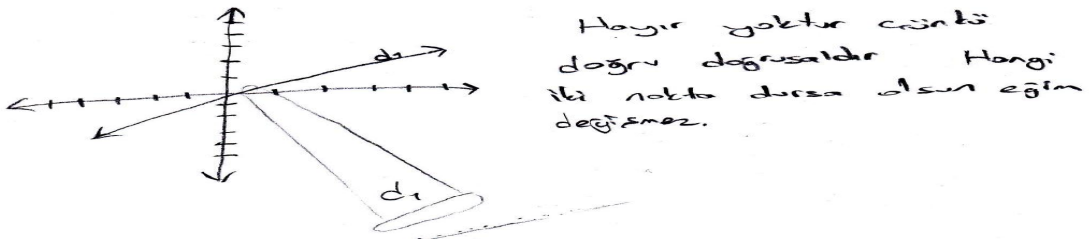 Hayır yoktur çünkü
doğru doğrusaldır Hangi
iki nokta dursa olsun eğim
değişmez.
d1
d1